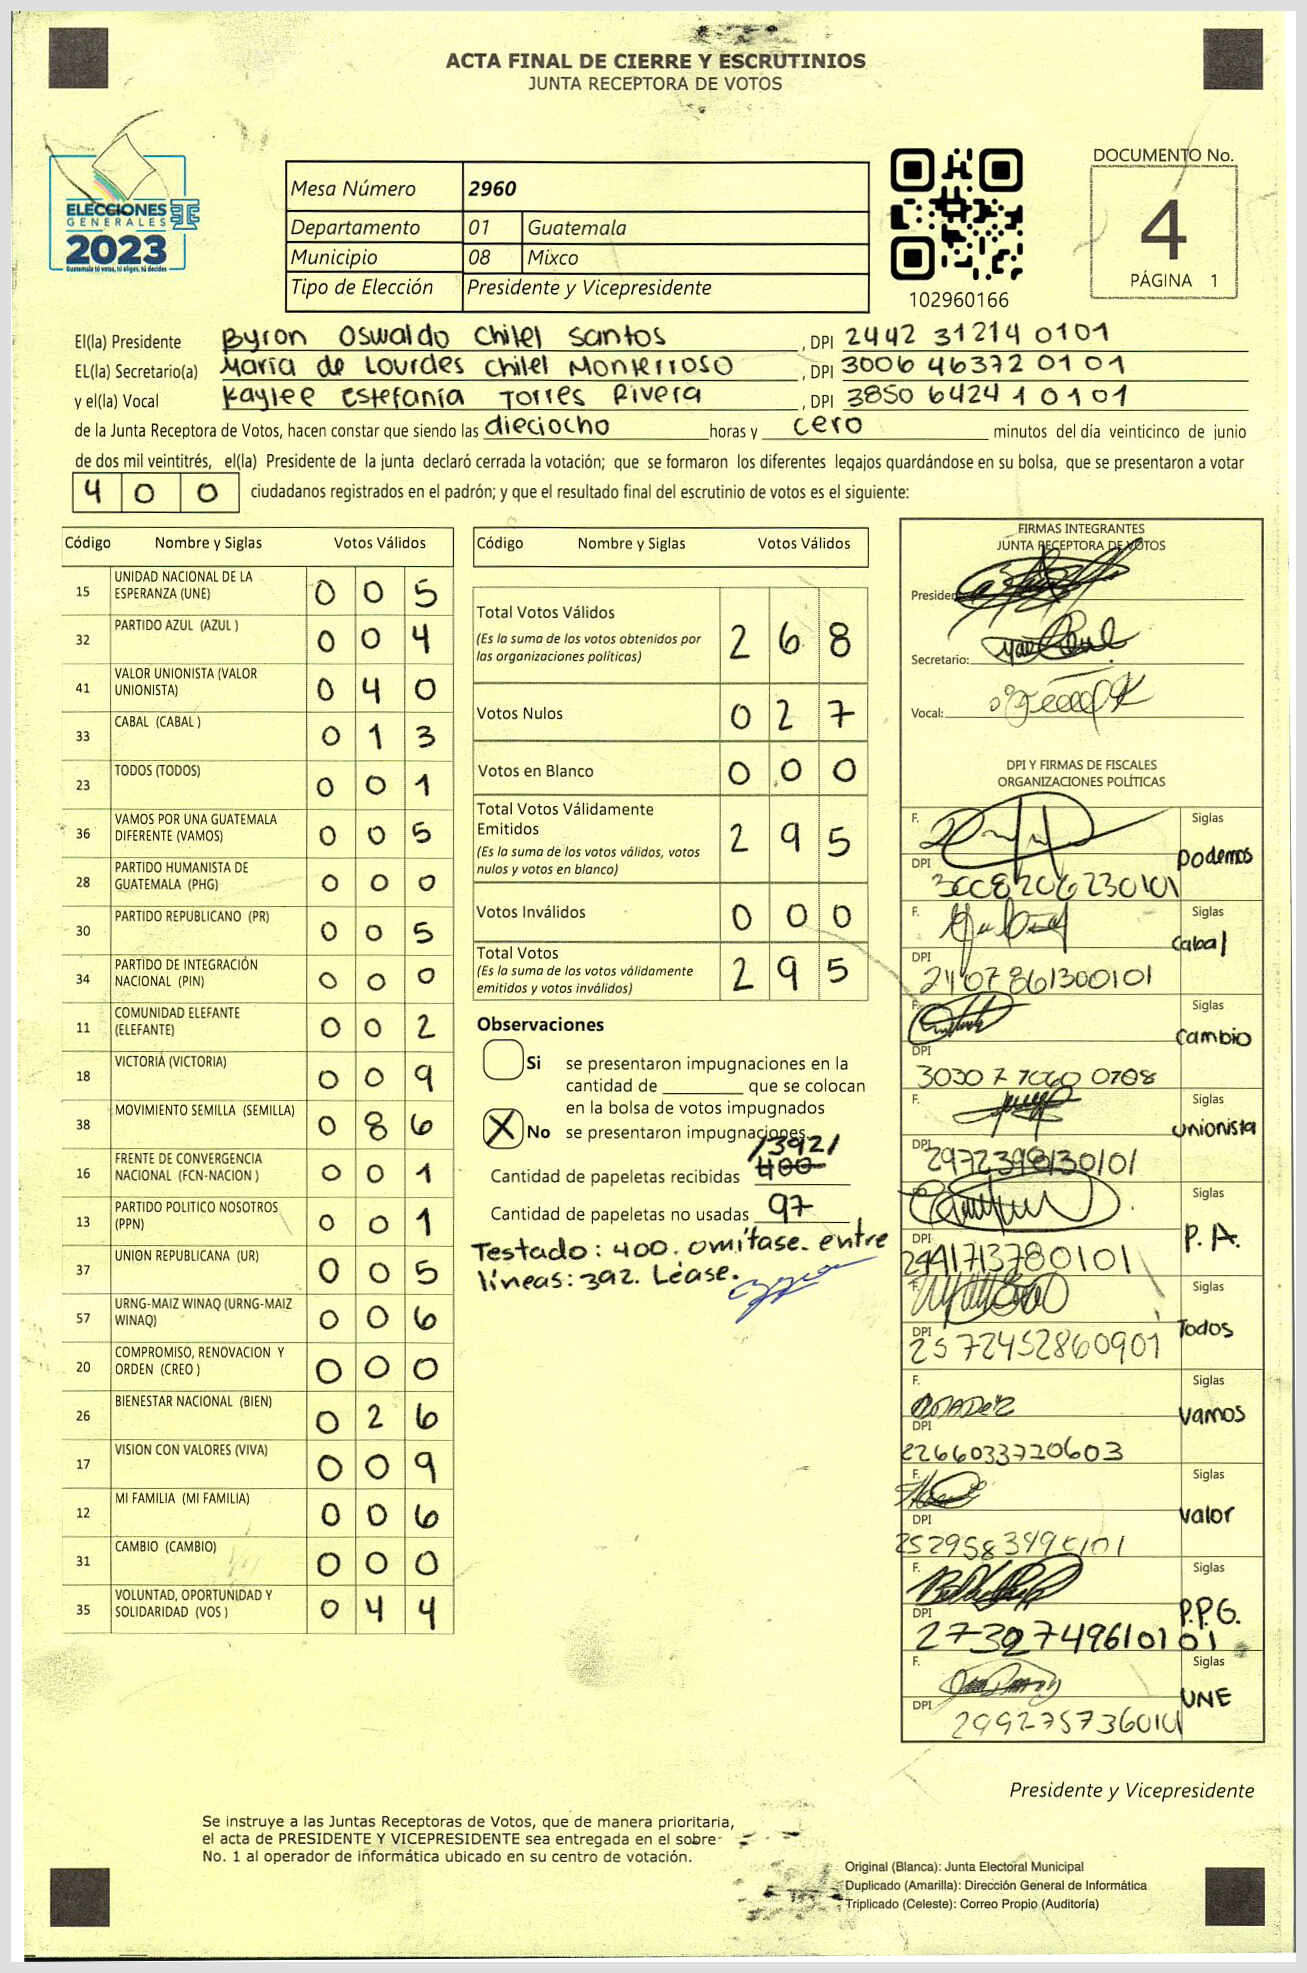 ACTA FINAL DE CIERRE Y ESCRUTINIOS
JUNTA RECEPTORA DE VOTOS
ELECCIONES
GENERALES
2023
Guatemala tú votas, tú eliges, tú decides
Mesa Número 2960
Departamento 01 Guatemala
Municipio 08 Mixco
Tipo de Elección Presidente y Vicepresidente
102960166
DOCUMENTO No.
4
PÁGINA 1
El(la) Presidente Byron Oswaldo Chilel Santos, DPI 2442 31214 0101
EL(la) Secretario(a) María de Lourdes Chilel Monterroso, DPI 3006 46372 0101
y el(la) Vocal Kaylee Estefanía Torres Rivera, DPI 3850 64241 0101
de la Junta Receptora de Votos, hacen constar que siendo las dieciocho horas y cero minutos del día veinticinco de junio
de dos mil veintitrés, el(la) Presidente de la junta declaró cerrada la votación; que se formaron los diferentes legajos quardándose en su bolsa, que se presentaron a votar
400 ciudadanos registrados en el padrón; y que el resultado final del escrutinio de votos es el siguiente:
Código Nombre y Siglas Votos Válidos
15 UNIDAD NACIONAL DE LA ESPERANZA (UNE) 005
32 PARTIDO AZUL (AZUL ) 004
41 VALOR UNIONISTA (VALOR UNIONISTA) 040
33 CABAL (CABAL ) 013
23 TODOS (TODOS) 001
36 VAMOS POR UNA GUATEMALA DIFERENTE (VAMOS) 005
28 PARTIDO HUMANISTA DE GUATEMALA (PHG) 000
30 PARTIDO REPUBLICANO (PR) 005
34 PARTIDO DE INTEGRACIÓN NACIONAL (PIN) 000
11 COMUNIDAD ELEFANTE (ELEFANTE) 002
18 VICTORIA (VICTORIA) 009
38 MOVIMIENTO SEMILLA (SEMILLA) 086
16 FRENTE DE CONVERGENCIA NACIONAL (FCN-NACION ) 001
13 PARTIDO POLITICO NOSOTROS (PPN) 001
37 UNION REPUBLICANA (UR) 005
57 URNG-MAIZ WINAQ (URNG-MAIZ WINAQ) 006
20 COMPROMISO, RENOVACION Y ORDEN (CREO ) 000
26 BIENESTAR NACIONAL (BIEN) 026
17 VISION CON VALORES (VIVA) 009
12 MI FAMILIA (MI FAMILIA) 006
31 CAMBIO (CAMBIO) 000
35 VOLUNTAD, OPORTUNIDAD Y SOLIDARIDAD (VOS ) 044
Código Nombre y Siglas Votos Válidos
Total Votos Válidos 268
(Es la suma de los votos obtenidos por
las organizaciones políticas)
Votos Nulos 027
Votos en Blanco 000
Total Votos Válidamente
Emitidos 295
(Es la suma de los votos válidos, votos
nulos y votos en blanco)
Votos Inválidos 000
Total Votos 295
(Es la suma de los votos válidamente
emitidos y votos inválidos)
Observaciones
Si se presentaron impugnaciones en la
cantidad de ________ que se colocan
en la bolsa de votos impugnados
X No se presentaron impugnaciones
/392/
Cantidad de papeletas recibidas 400
Cantidad de papeletas no usadas 97
Testado: 400. omítase. entre
líneas: 392. Léase.
FIRMAS INTEGRANTES
JUNTA RECEPTORA DE VOTOS
Presidente:
Secretario:
Vocal:
DPI Y FIRMAS DE FISCALES
ORGANIZACIONES POLÍTICAS
F. Siglas
Podemos
DPI 3008206230101
F. Siglas
Cabal
DPI 2407861300101
F. Siglas
Cambio
DPI
F. Siglas
Unionista
DPI 2972398130101
F. Siglas
P.A.
DPI 2441713780101
F. Siglas
Todos
DPI 2572452860901
F. Siglas
Vamos
DPI 2266033720603
F. Siglas
Valor
DPI
F. Siglas
P.P.G.
DPI 2730749610101
F. Siglas
UNE
DPI
Presidente y Vicepresidente
Se instruye a las Juntas Receptoras de Votos, que de manera prioritaria,
el acta de PRESIDENTE Y VICEPRESIDENTE sea entregada en el sobre
No. 1 al operador de informática ubicado en su centro de votación.
Original (Blanca): Junta Electoral Municipal
Duplicado (Amarilla): Dirección General de Informática
Triplicado (Celeste): Correo Propio (Auditoría)